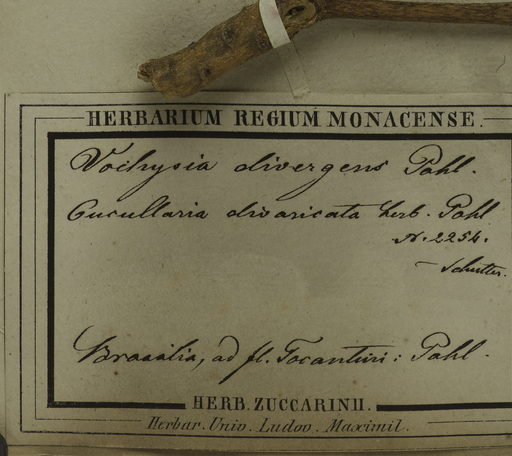 HERBARIUM REGIUM MONACENSE.
Vochysia divergens Pohl.
Cucullaria divaricata herb. Pohl
N. 2254.
Brasilia, ad fl. Tocantin: Pohl.
HERB. ZUCCARINII.
Herbar. Univ. Ludov. Maximil.